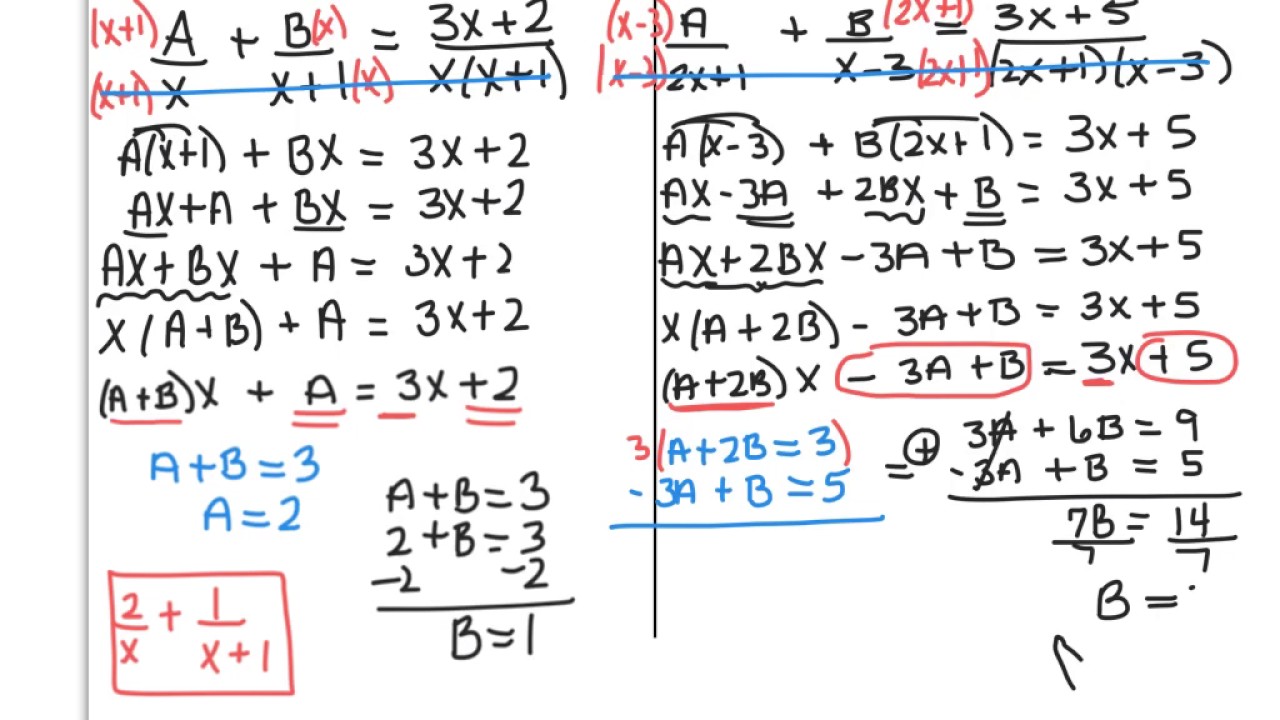 (x+1) A/x + B(x)/x+1(x) = 3x+2/x(x+1)
(x+1)
A(x+1) + Bx = 3x+2
Ax+A + Bx = 3x+2
Ax+Bx + A = 3x+2
x(A+B) + A = 3x+2
(A+B)x + A = 3x+2
A+B=3
A=2
A+B=3
2+B=3
-2 -2
B=1
2/x + 1/x+1
(x-3) A/2x+1 + B(2x+1)/x-3(2x+1) = 3x+5/(2x+1)(x-3)
(x-3)
A(x-3) + B(2x+1) = 3x+5
Ax-3A + 2Bx+B = 3x+5
Ax+2Bx-3A+B = 3x+5
x(A+2B) - 3A+B = 3x+5
(A+2B)x - 3A+B = 3x+5
3(A+2B=3)
-3A+B=5
= + 3A + 6B = 9
-3A + B = 5
7B/7 = 14/7
B =